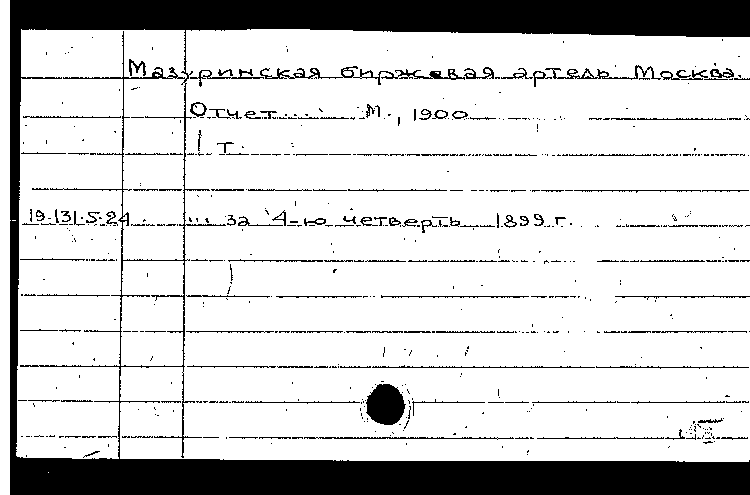 Мазуринская биржевая артель Москва.
Отчет... М., 1900
1 т.
19.131.5.24. ... за 4-ю четверть 1899 г.